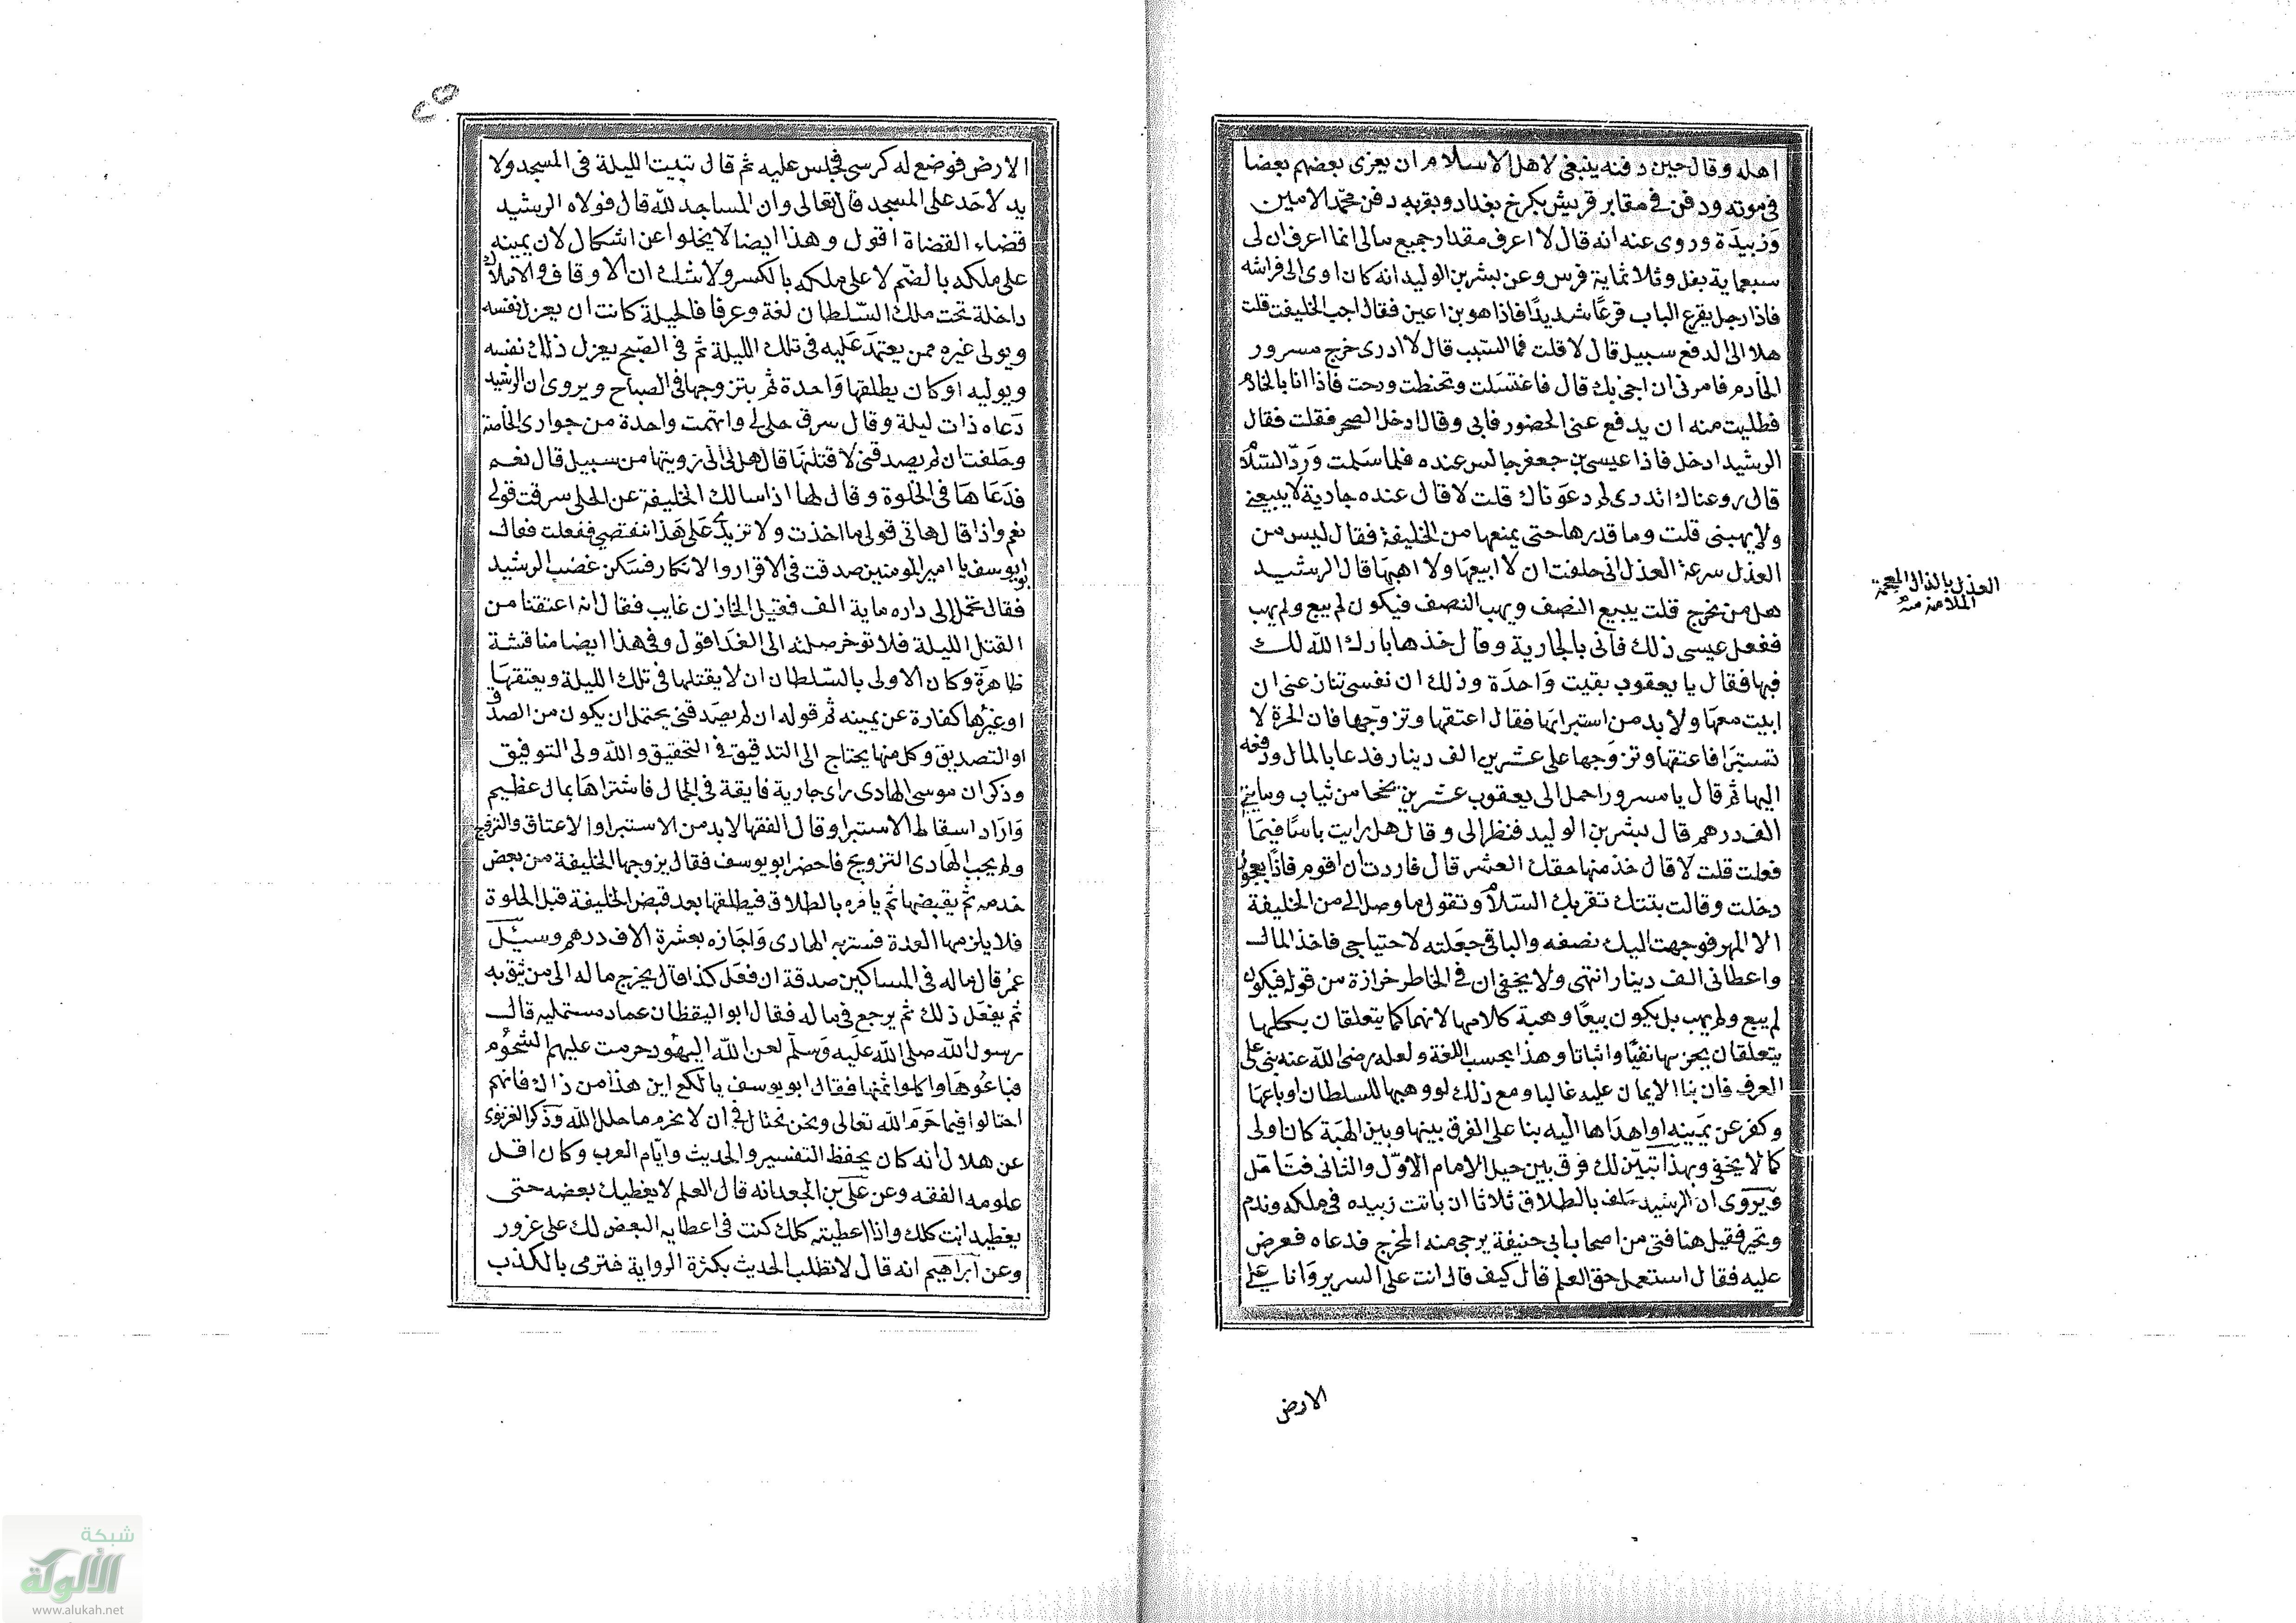 اهله وقال حين دفنه ينبغى لاهل الاسلام ان يعزى بعضهم بعضا
فى موته ودفن فى مقابر قريش بكرخ بغداد وبقربه دفن محمد الامين
وزبيدة وروى عنه انه قال لا اعرف مقدار جميع مالى انما اعرف ان لى
سبعماية بغل وثلاثماية فرس وعن بشر بن الوليد انه كان اوى الى فراشه
فاذا رجل يقرع الباب قرعا شديدا فاذا هو بن اعين فقال اجب الخليفت قلت
هل الى الدفع سبيل قال لا قلت فما السبب قال لا ادرى خرج مسرور
الخادم فامرنى ان اجئ بك قال فاغتسلت وتحنطت ورحت فاذا انا بالخادم
فطلبت منه ان يدفع عنى الحضور فابى وقال ادخل الصحر فقلت فقال
الرشيد ادخل فاذا عيسى بن جعفر جالس عنده فلما سلمت ورد السلام
قال روعناك اتدرى لم دعوناك قلت لا قال عنده جارية لا يبيعنى
ولا يهبنى قلت وما قدرها حتى يمنعها من الخليفة فقال ليس من
العذل سرعة العذل انى حلفت ان لا ابيعها ولا اهبها قال الرشيد
هل من مخرج قلت يبيع النصف ويهب النصف فيكون لم يبع ولم يهب
ففعل عيسى ذلك فاتى بالجارية وقال خذها بارك الله لك
فيها فقال يا يعقوب بقيت واحدة وذلك ان نفسى تنازعنى ان
ابيت معها ولا بد من استبرائها فقال اعتقها وتزوجها فان الحرة لا
تستبرا فاعتقها وتزوجها على عشرين الف دينار فدعا بالمال ودفعه
اليها ثم قال يا مسرور احمل الى يعقوب عشرين تختا من ثياب ومايتى
الف درهم قال بشر بن الوليد فنظر الى وقال هل رايت باسا فيما
فعلت قلت لا قال خذ منها حقك العشر قال فاردت ان اقوم فاذا بعجوز
دخلت وقالت بنتك تقريك السلام وتقول ما وصل الى من الخليفة
الا المهر فوجهت اليك نصفه والباقى جعلته لاحتياجى فاخذ المال
واعطانى الف دينار انتهى ولا يخفى ان فى الخاطر حزازة من قوله فيكون
لم يبع ولم يهب بل يكون بيعا وهبة كلامها لانهما كما يتعلقان بكلها
يتعلقان بجزيها نفيا واثباتا وهذا بحسب اللغة ولعله رضى الله عنه بنى على
العرف فان بنا الايمان عليه غالبا ومع ذلك لو وهبها للسلطان او باعها
وكفر عن يمينه او اهداها اليه بنا على الفرق بينها وبين الهبة كان اولى
كما لا يخفى وبهذا تبين لك فرق بين حيل الامام الاول والثانى فتامل
ويروى ان الرشيد حلف بالطلاق ثلاثا ان باتت زبيده فى ملكه وندم
وتحير فقيل هنا فتى من اصحاب ابى حنيفة يرجى منه المخرج فدعاه فعرض
عليه فقال استعمل حق العلم قال كيف قال انت على السرير وانا على
العذل بالذال المعجمة
الملامة منه
الارض
الارض فوضع له كرسى فجلس عليه ثم قال تبيت الليلة فى المسجد ولا
يد لاحد على المسجد قال تعالى وان المساجد لله قال فولاه الرشيد
قضاء القضاة اقول وهذا ايضا لا يخلوا عن اشكال لان يمينه
على ملكه بالضم لا على ملكه بالكسر ولا شك ان الاوقاف والاملاك
داخلة تحت ملك السلطان لغة وعرفا فالحيلة كانت ان يعزل نفسه
ويولى غيره ممن يعتمد عليه فى تلك الليلة ثم فى الصبح يعزل ذلك نفسه
ويوليه او كان يطلقها واحدة ثم يتزوجها فى الصباح ويروى ان الرشيد
دعاه ذات ليلة وقال سرق حلى لى واتهمت واحدة من جوارى الخاصة
وحلفت ان لم يصدقنى لاقتلنها قال هل لى الى رويتها من سبيل قال نعم
فدعاها فى الخلوة وقال لها اذا سالك الخليفة عن الحلى سرقت قولى
نعم واذا قال هاتى قولى ما اخذت ولا تزيدى على هذا ففعلت فقال
ابو يوسف يا امير المومنين صدقت فى الاقرار والانكار فسكن غضب الرشيد
فقال تحمل الى داره ماية الف فقيل الخازن غايب فقال انه اعتقنا من
القتل الليلة فلا توخر صلته الى الغد اقول وفى هذا ايضا مناقشة
ظاهرة وكان الاولى بالسلطان ان لا يقتلها فى تلك الليلة ويعتقها
او غيرها كفارة عن يمينه ثم قوله ان لم يصدقنى يحتمل ان يكون من الصدق
او التصديق وكل منها يحتاج الى التدقيق فى التحقيق والله ولى التوفيق
وذكر ان موسى الهادى راى جارية فايقة فى الجمال فاشتراها بمال عظيم
واراد اسقاط الاستبرا وقال الفقها لا بد من الاستبرا والاعتاق والتزويج
ولم يحب الهادى التزويج فاحضر ابو يوسف فقال يزوجها الخليفة من بعض
خدمه ثم يقبضها ثم يامره بالطلاق فيطلقها بعد قبض الخليفة قبل الخلوة
فلا يلزمها العدة فسر به الهادى واجازه بعشرة الاف درهم وسئل
عمن قال ماله فى المساكين صدقة ان فعل كذا قال يخرج ماله الى من يثق به
ثم يفعل ذلك ثم يرجع فى ماله فقال ابو اليقظان عماد مستمليه قال
رسول الله صلى الله عليه وسلم لعن الله اليهود حرمت عليهم الشحوم
فباعوها واكلوا ثمنها فقال ابو يوسف يا لكع اين هذا من ذاك فانهم
احتالوا فيما حرم الله تعالى ونحن نحتال فى ان لا يحرم ما حلل الله وذكر الغزنوى
عن هلال انه كان يحفظ التفسير والحديث وايام العرب وكان اقل
علومه الفقه وعن على بن الجعد انه قال العلم لا يعطيك بعضه حتى
يعطيه انت كلك وانا اعطيته كلك كنت فى اعطايه البعض لك على غرور
وعن ابراهيم انه قال لا تطلب الحديث بكثرة الرواية فترمى بالكذب
شبكة
الألوكة
www.alukah.net